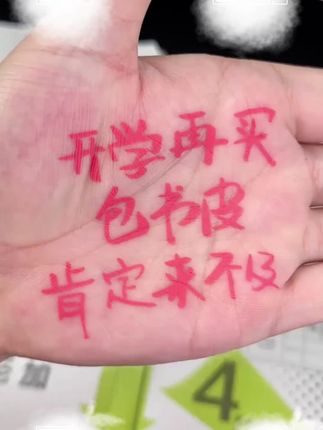 开学再买
包书皮
肯定来不及
参加
4